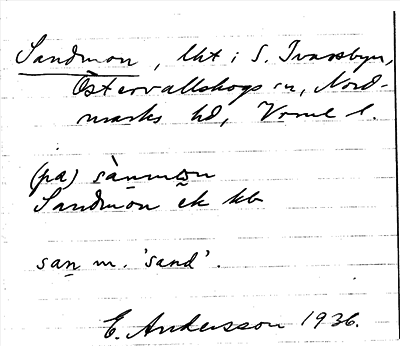 Sandmon, lht i S. Ivarsbyn,
Östervallskogs sn, Nord-
marks hd, Vrml l.
(pa) sànmon
Sandmon ek kb
san m. 'sand'.
E. Andersson 1936.